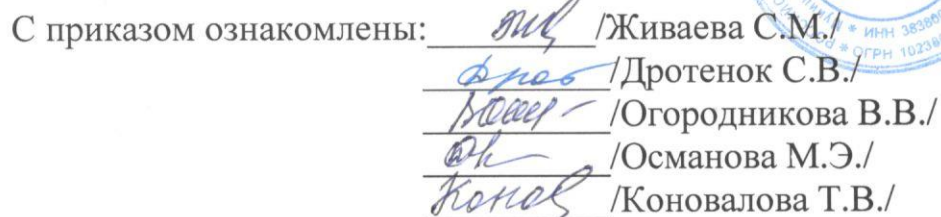 С приказом ознакомлены: /Живаева С.М./
/Дротенок С.В./
/Огородникова В.В./
/Османова М.Э./
/Коновалова Т.В./
* ИНН 38380
* ОГРН 10238